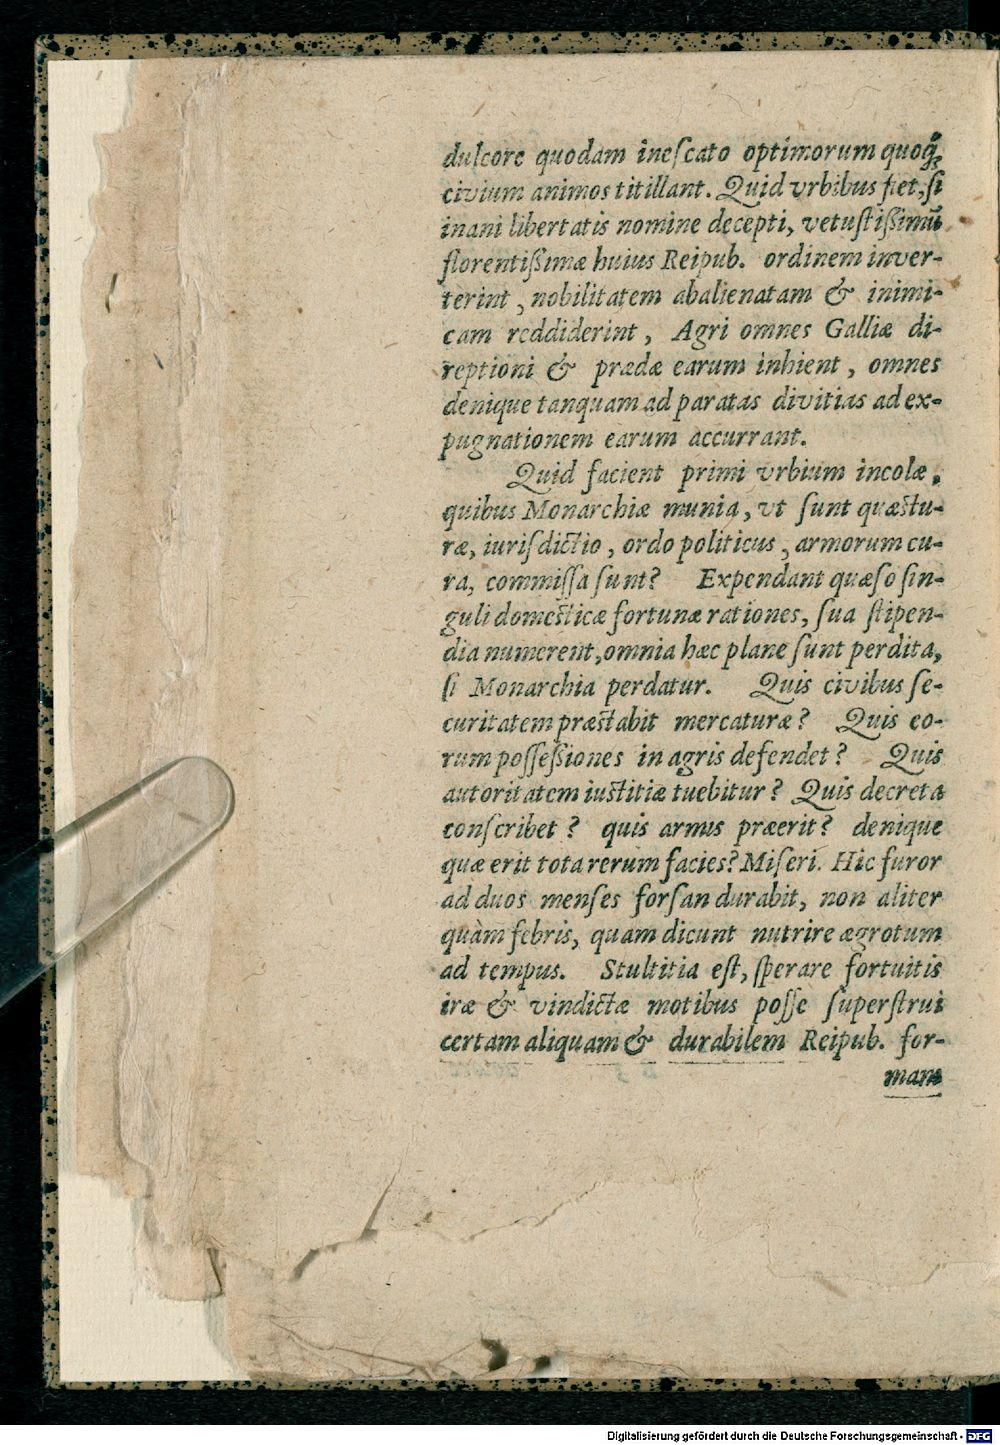 dulcore quodam ineſcato optimorum quoq́ꝫ
civium animos titillant. Quid vrbibus fiet, ſi
inani libertatis nomine decepti, vetuſtiſsimū
florentiſsimæ huius Reipub. ordinem inver-
terint, nobilitatem abalienatam & inimi-
cam reddiderint, Agri omnes Galliæ di-
reptioni & prædæ earum inhient, omnes
denique tanquam ad paratas divitias ad ex-
pugnationem earum accurrant.
Quid facient primi vrbium incolæ,
quibus Monarchiæ munia, vt ſunt quæſtu-
ræ, iuriſdictio, ordo politicus, armorum cu-
ra, commiſſa ſunt? Expendant quæſo ſin-
guli domeſticæ fortunæ rationes, ſua ſtipen-
dia numerent, omnia hæc plane ſunt perdita,
ſi Monarchia perdatur. Quis civibus ſe-
curitatem præſtabit mercaturæ? Quis eo-
rum poſſeſsiones in agris defendet? Quis
autoritatem iuſtitiæ tuebitur? Quis decreta
conſcribet? quis armis præerit? denique
quæ erit tota rerum facies? Miſeri. Hic furor
ad duos menſes forſan durabit, non aliter
quàm febris, quam dicunt nutrire ægrotum
ad tempus. Stultitia eſt, ſperare fortuitis
iræ & vindictæ motibus poſſe ſuperſtrui
certam aliquam & durabilem Reipub. for-
mam
Digitalisierung gefördert durch die Deutsche Forschungsgemeinschaft - DFG